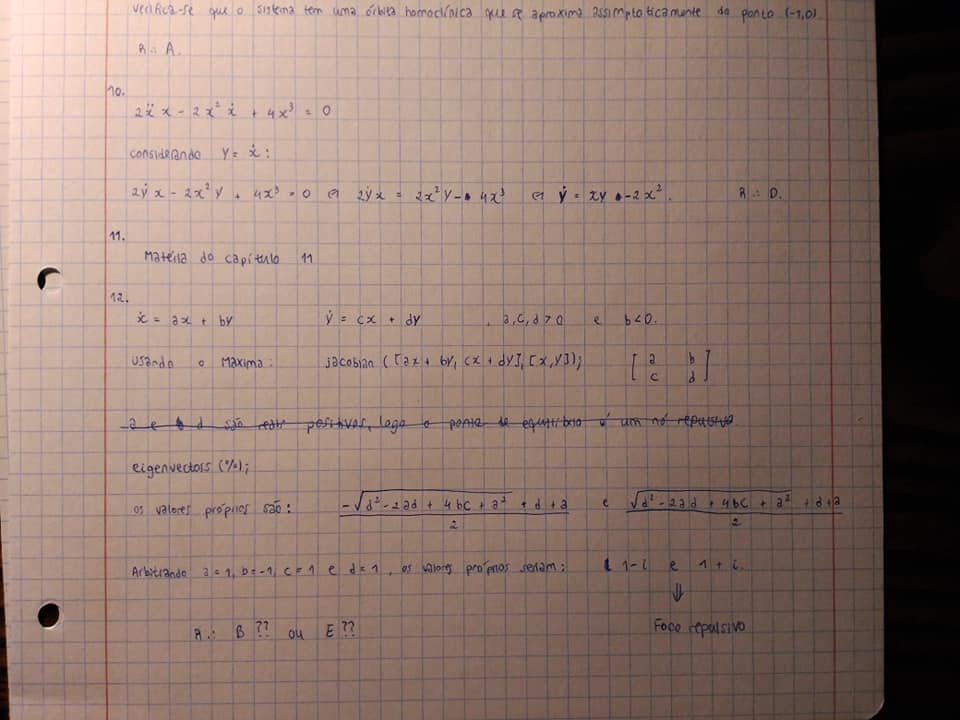 verifica-se que o sistema tem uma órbita homoclínica que se aproxima assimptoticamente do ponto (-1,0).
R.: A.
10.
2ẍx - 2x²ẋ + 4x³ = 0
considerando y = ẋ:
2ẏx - 2x²y + 4x³ = 0 ⇔ 2ẏx = 2x²y - 4x³ ⇔ ẏ = xy - 2x². R.: D.
11.
Matéria do capítulo 11
12.
ẋ = ax + by ẏ = cx + dy , a,c,d > 0 e b < 0.
usando o Maxima: jacobian ([ax + by, cx + dy], [x,y]); [a b
c d]
a e d são positivos, logo o ponto de equilíbrio é um nó repulsivo.
eigenvectors (%);
os valores próprios são: (-√(d² - 2ad + 4bc + a²) + d + a)/2 e (√(d² - 2ad + 4bc + a²) + d + a)/2
Arbitrando a = 1, b = -1, c = 1 e d = 1, os valores próprios seriam: 1 - i e 1 + i.
⇓
R.: B ?? ou E ?? Foco repulsivo